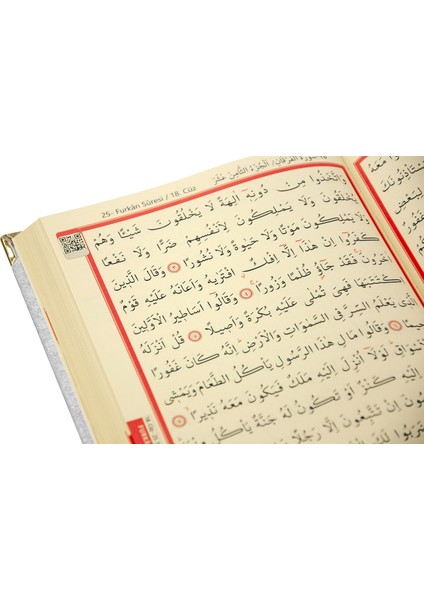 25- Furkân Sûresi / 18. Cüz
سُورَةُ الْفُرْقَانِ / اَلْجُزْءُ الثَّامِنَ عَشَرَ
وَاتَّخَذُوا مِنْ دُونِهٖٓ اٰلِهَةً لَا يَخْلُقُونَ شَيْئًا وَهُمْ
يُخْلَقُونَ وَلَا يَمْلِكُونَ لِاَنْفُسِهِمْ ضَرًّا وَلَا نَفْعًا
وَلَا يَمْلِكُونَ مَوْتًا وَلَا حَيٰوةً وَلَا نُشُورًا ٣ وَقَالَ الَّذٖينَ
كَفَرُٓوا اِنْ هٰذَٓا اِلَّٓا اِفْكٌ افْتَرٰيهُ وَاَعَانَهُ عَلَيْهِ قَوْمٌ
اٰخَرُونَ فَقَدْ جَٓاؤُ ظُلْمًا وَزُورًا ٤ وَقَالُٓوا اَسَاطٖيرُ الْاَوَّلٖينَ
اكْتَتَبَهَا فَهِيَ تُمْلٰى عَلَيْهِ بُكْرَةً وَاَصٖيلًا ٥ قُلْ اَنْزَلَهُ
الَّذٖي يَعْلَمُ السِّرَّ فِي السَّمٰوَاتِ وَالْاَرْضِ اِنَّهُ كَانَ غَفُورًا
رَحٖيمًا ٦ وَقَالُوا مَالِ هٰذَا الرَّسُولِ يَأْكُلُ الطَّعَامَ وَيَمْشٖي
الْاَسْوَاقِ لَوْلَٓا اُنْزِلَ اِلَيْهِ مَلَكٌ فَيَكُونَ مَعَهُ نَذٖيرًا ٧
اِلَيْهِ كَنْزٌ اَوْ تَكُونُ لَهُ جَنَّةٌ يَأْكُلُ
اِنْ تَتَّبِعُونَ اِلَّا رَجُلًا